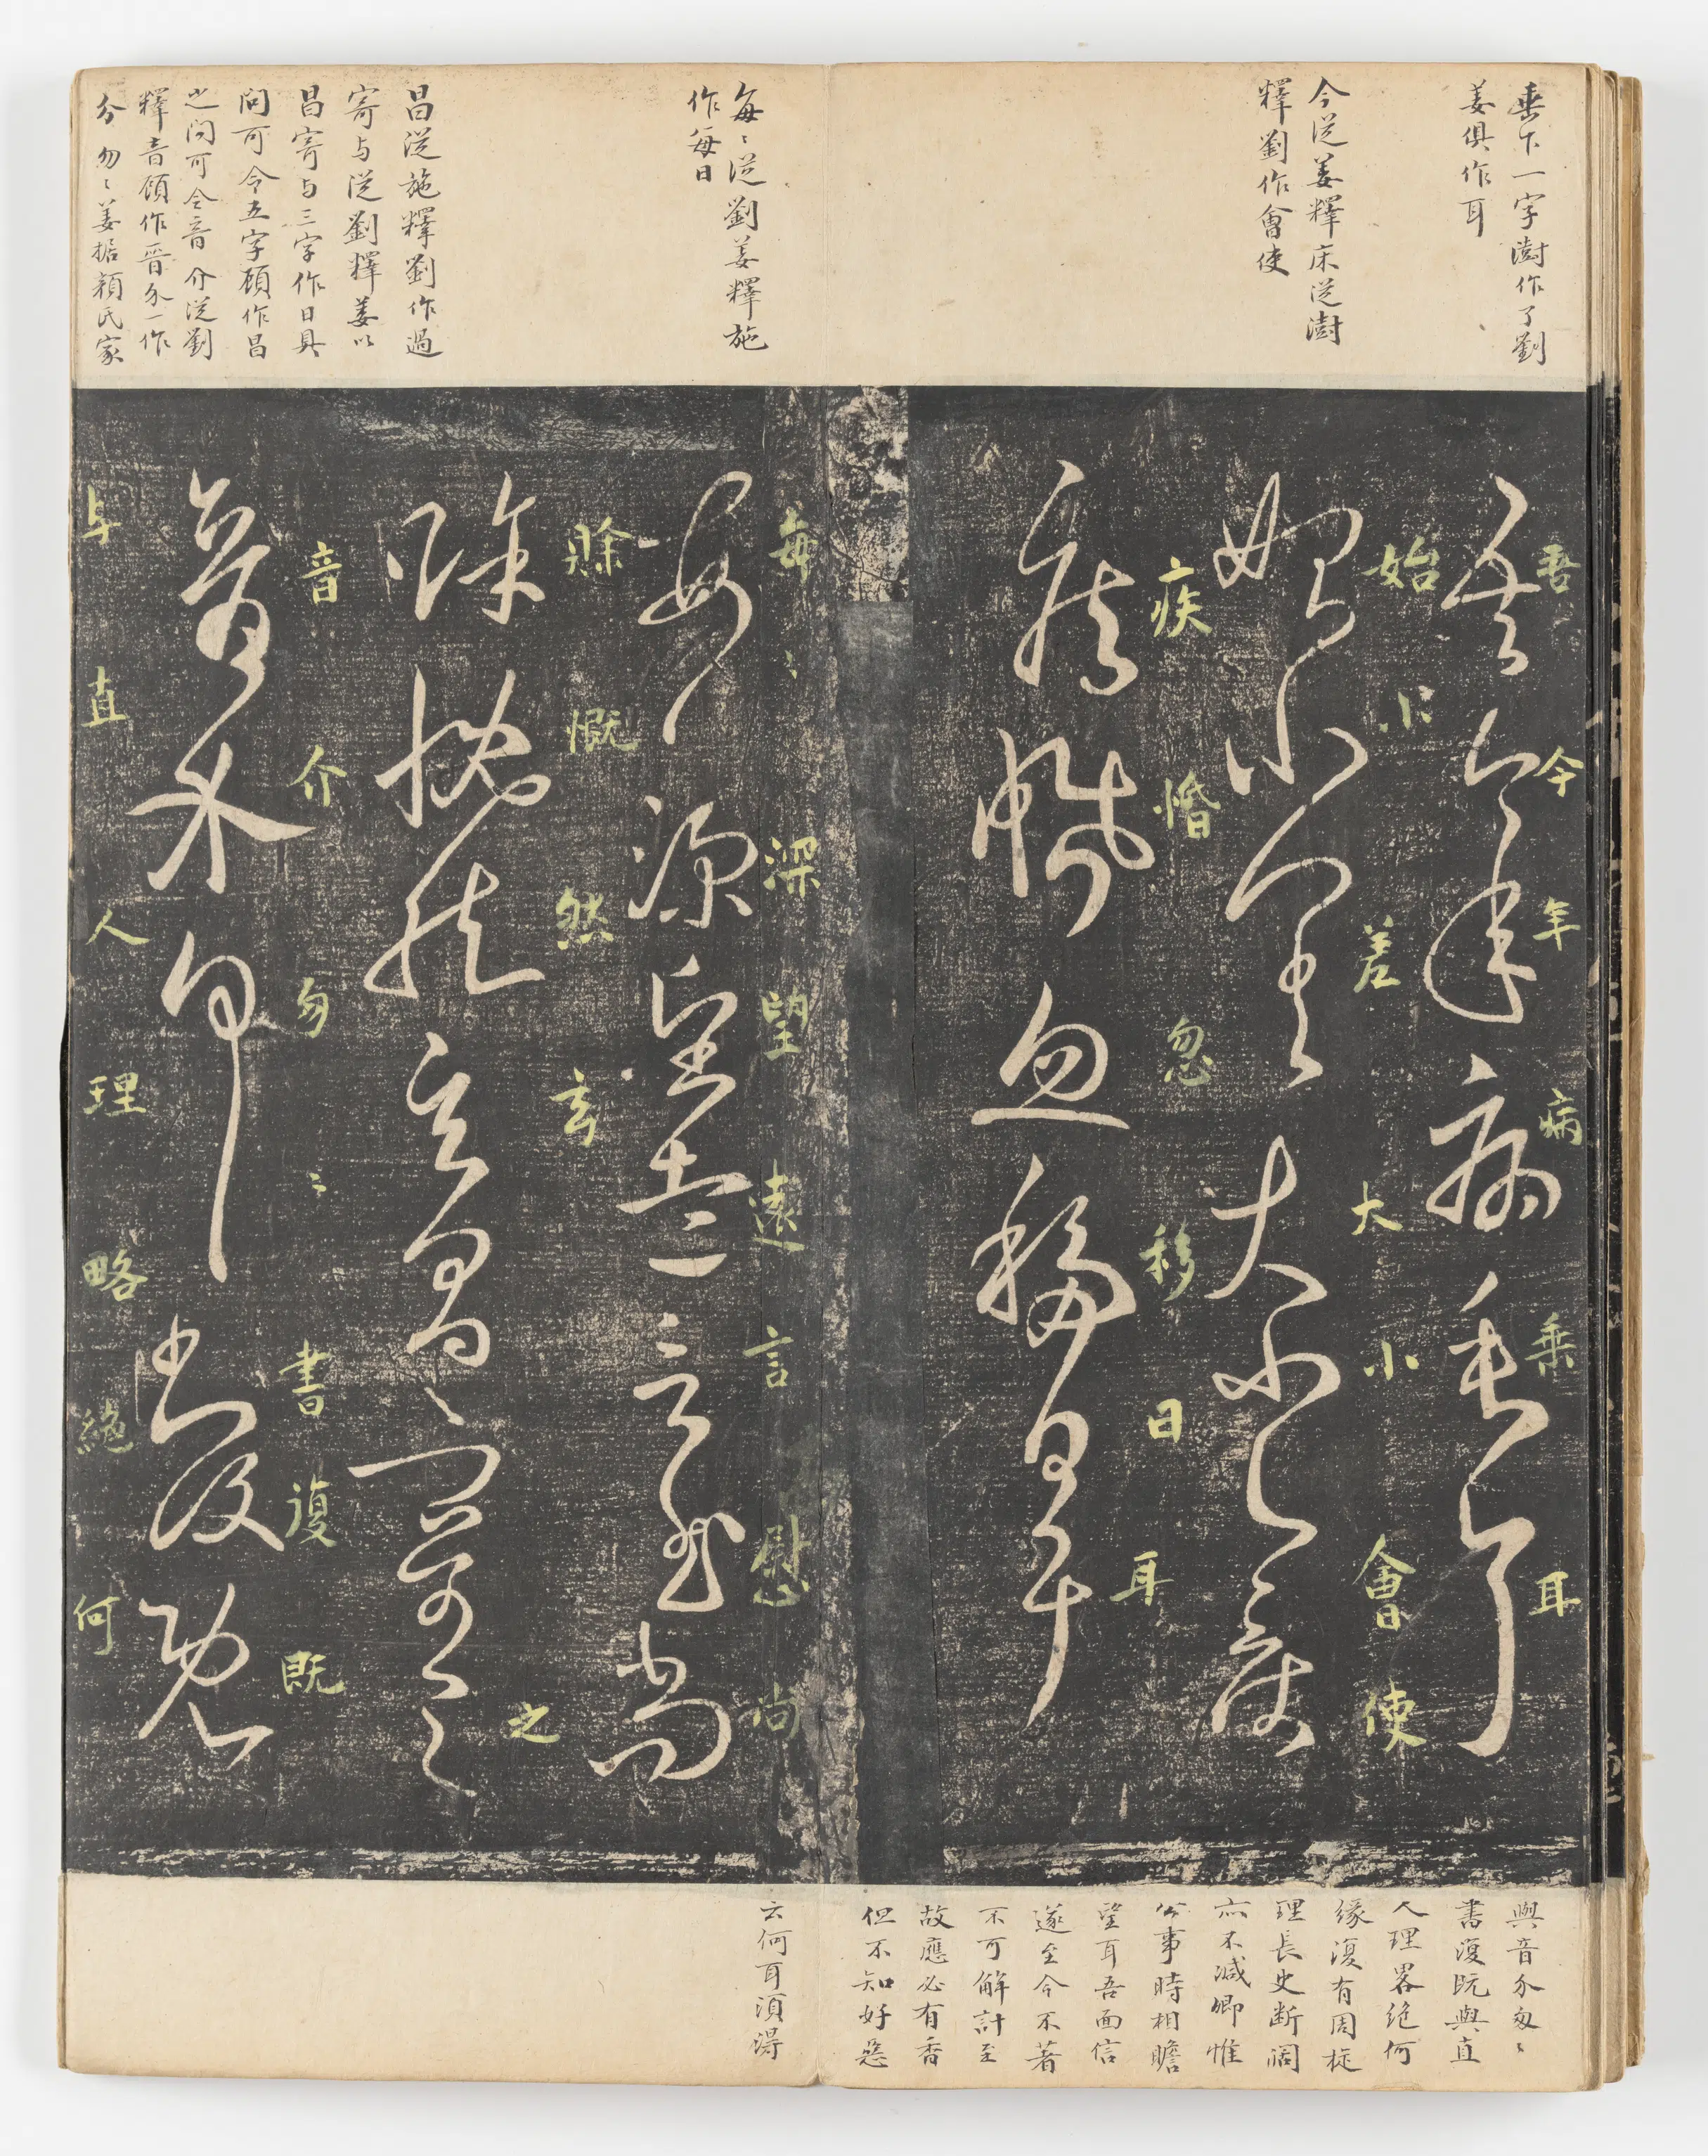 垂下一字澍作了劉
姜俱作耳
今從姜釋床從澍
釋劉作會使
每〻從劉姜釋施
作每日
昌從施釋劉作過
寄与從劉釋姜以
昌寄与三字作日具
問可令五字顧作昌
之問可令音 介從劉
釋音顧作晉尒一作
分 勿〻姜据顏氏家
吾今年病乗耳
始小差大小會使
疾惛忽移日耳
每〻深望遠言慰尚
賖慨然玄
之
音介勿〻書復既
与直人理略絶何
與音尒匆〻
書復既與直
人理畧絶何
緣復有周旋
理長史斷闊
亦不減卿惟
公事時相瞻
望耳吾面信
遂至今不著
不可解計至
故應必有香
但不知好惡
云何耳須得